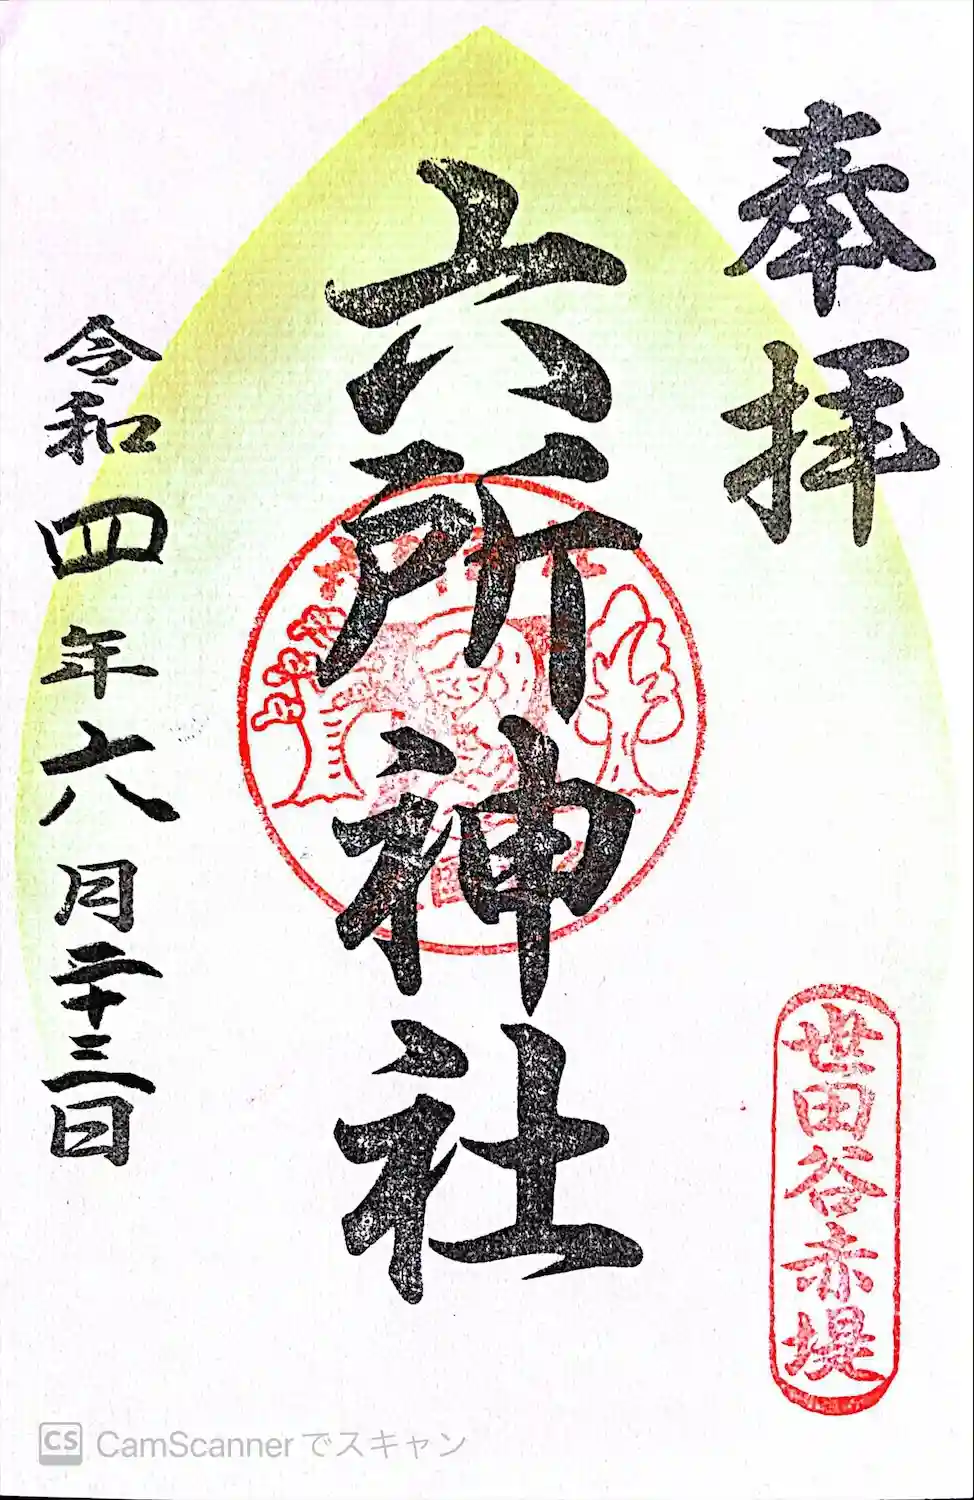 奉拝
六所神社
世田谷赤堤
令和四年六月二十三日
CS CamScannerでスキャン